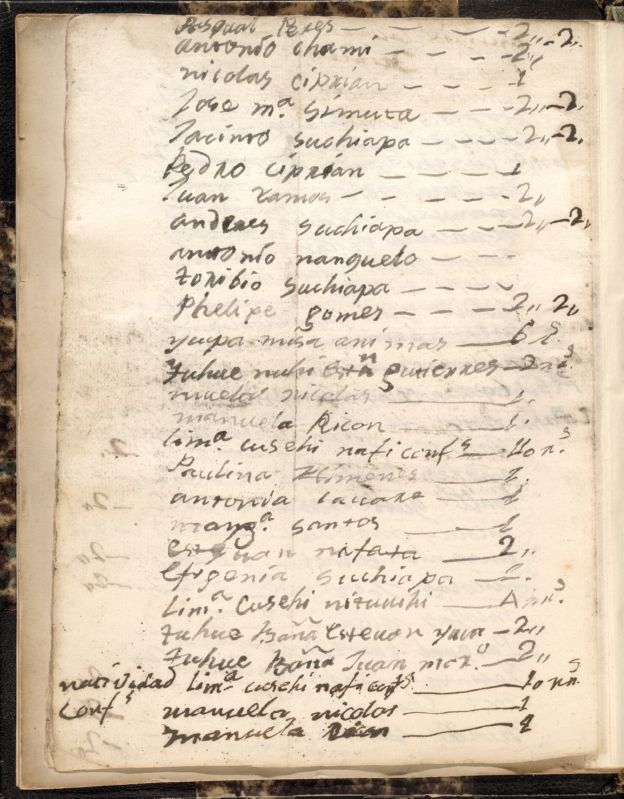 Pasqual Bres — — — — 2,,-2,
antonio chami — — — — 2,,
nicolas ciprian — — — 1
Jose m.a simuta — — — 2,,-2,
Jacinto suchiapa — — — 2,,-2,
Pedro ciprian — — — 1
Juan Ramos — — — — 2,,
anderes suchiapa — — — 2,,-2,
antonio nanguelo — — —
toribio suchiapa — — —
Phelipe gomes — — — — 2,, 2,
yaspa misa animas — 6 r.s
tuhue nuhi gutierres
nicolas 1.
manuela Ricon 1.
lim.a cusehi nati conf.s — 10 rr.s
Paulina Ximenes — 1.
antonia — 1
marg.a santos — 1
natata — 2,,
efigenia suchiapa — 2.
lim.a Cusehi
tuhue Baña Estevan — 2,,
tuhue Baña Juan — 2,,
natividad lim.a cusehi nati conf.s — 10 rr.s
Conf.s manuella nicolas — 1
manuela — 1